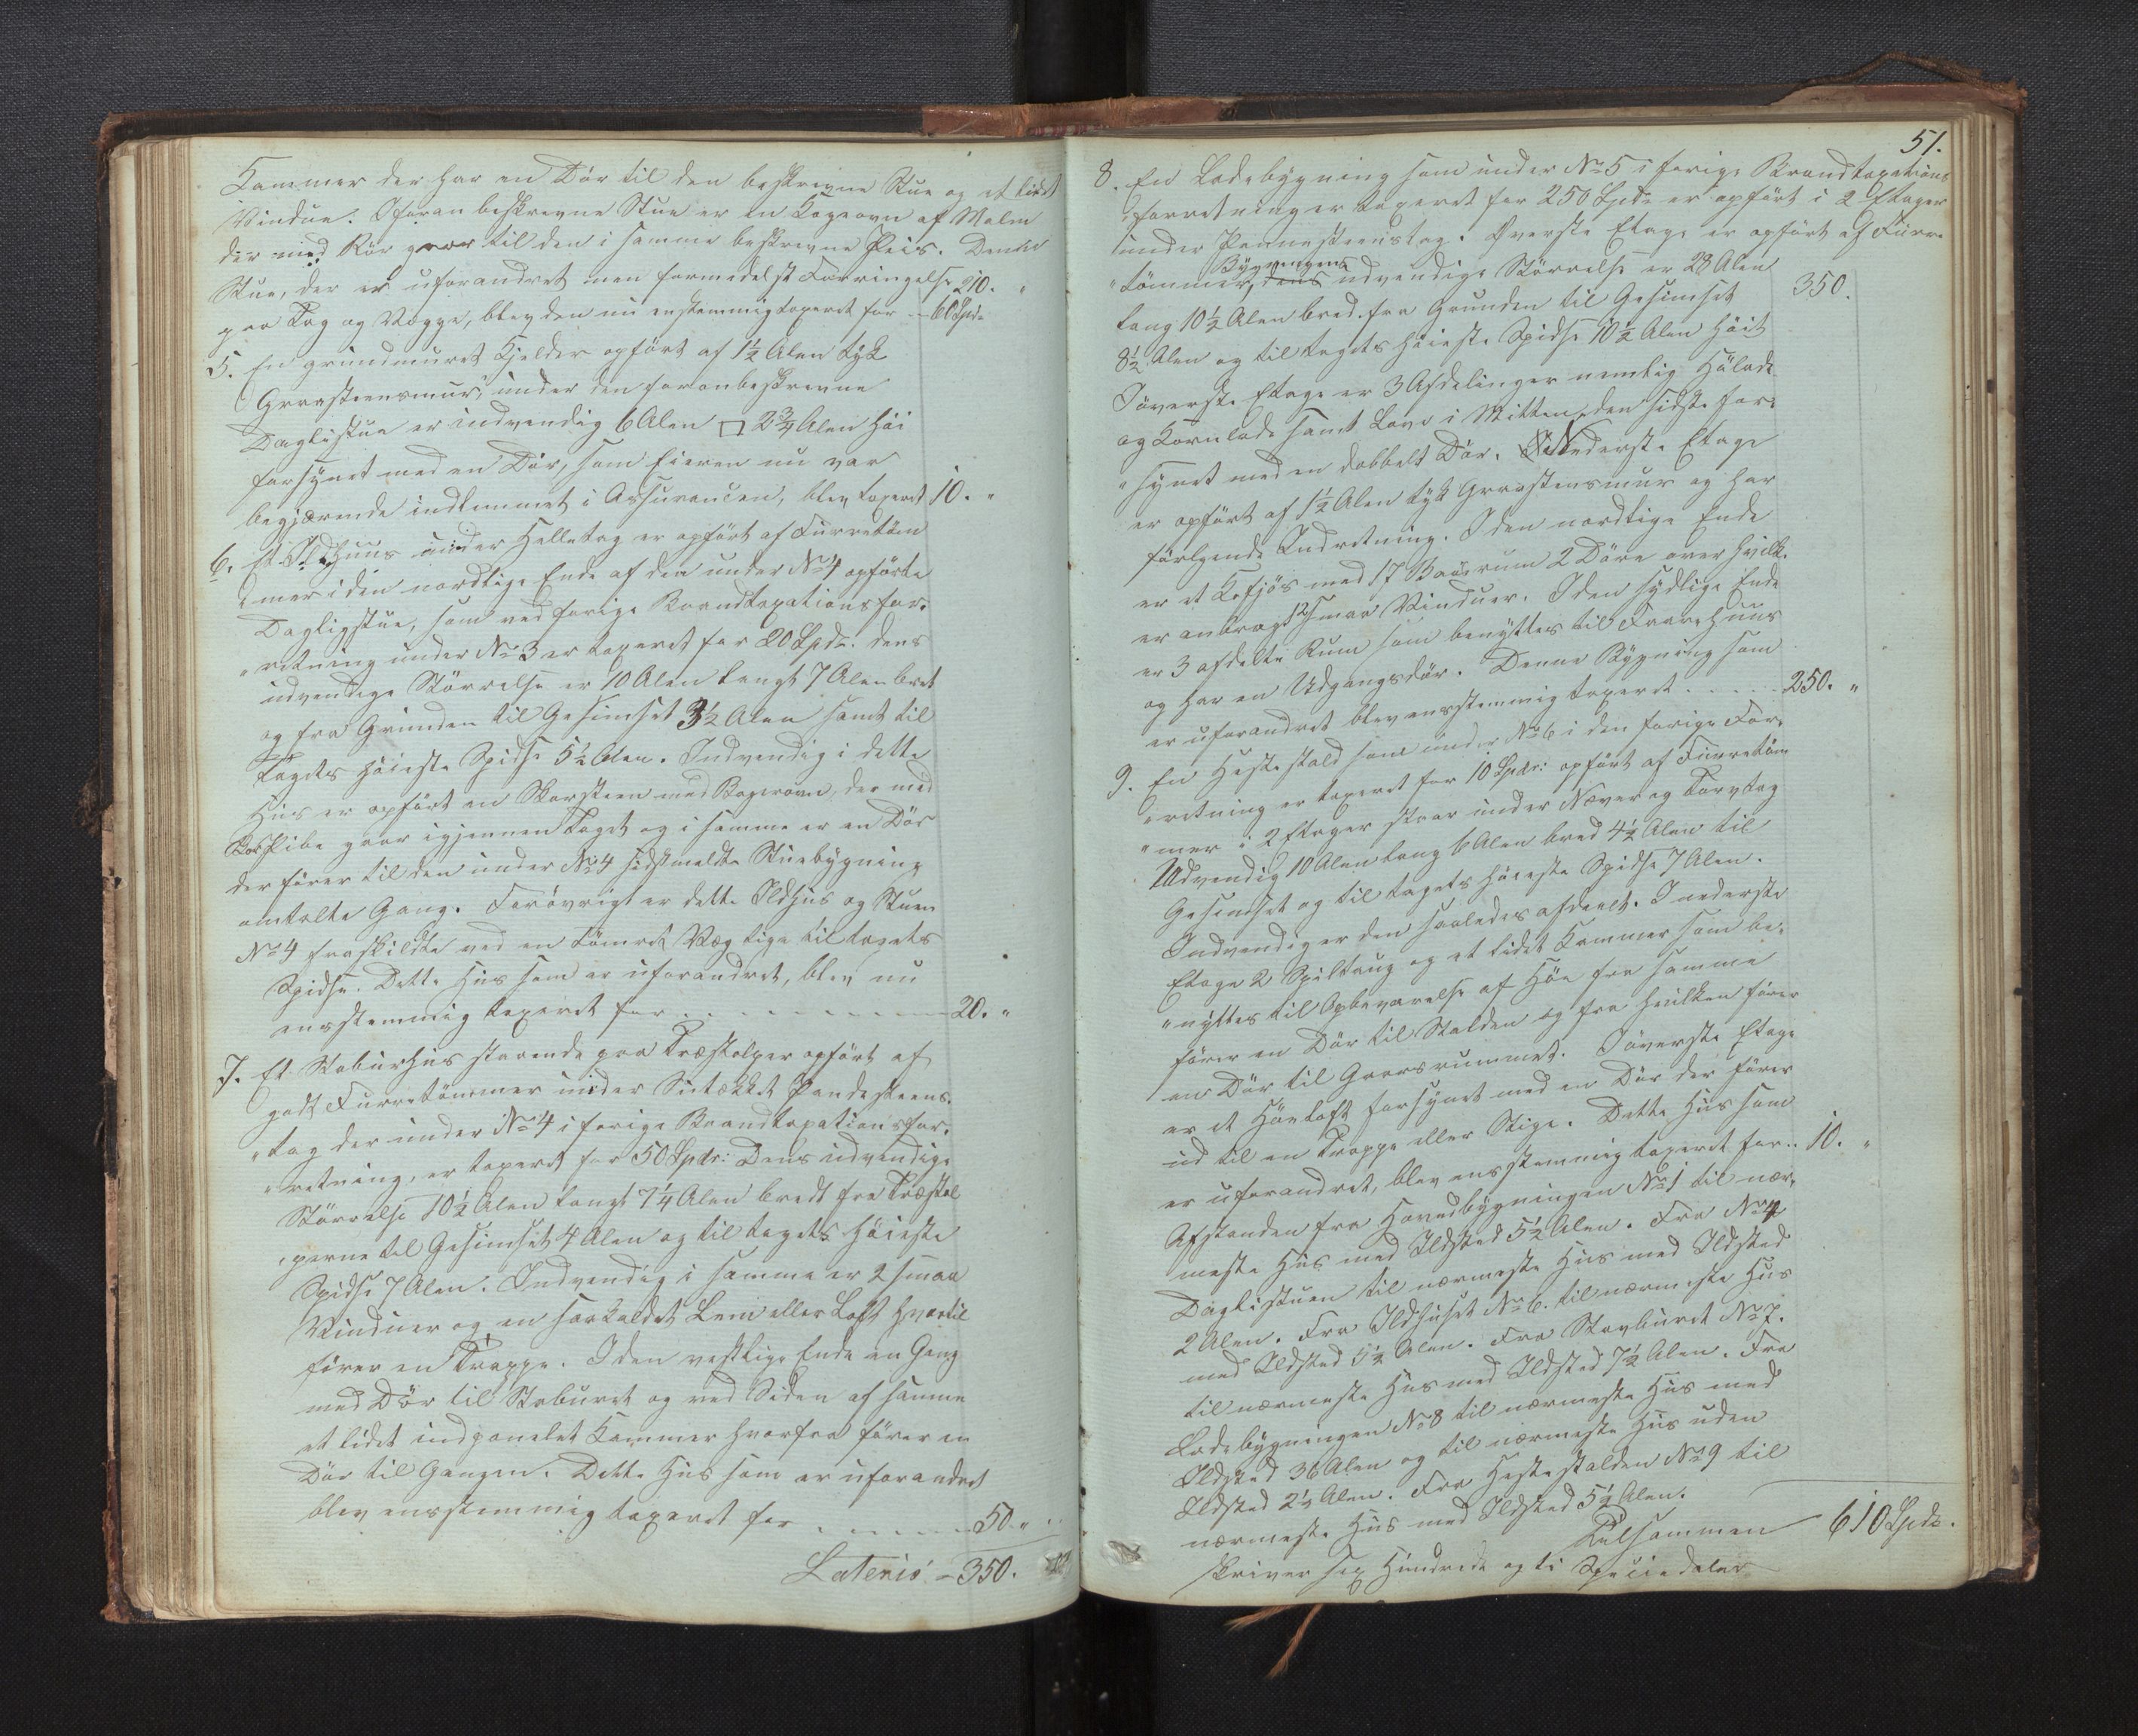 Kammer der har en Dör til den beskrevne Stue og et lidet
Vindue. I foran beskrevne Stue er en Kogeovn af Malm
der med Rör gaar til den i samme beskrevne Peis. Denne
Stue, der er uforandret men formedelst Forringelse 210. "
paa Tag og Vægge, blev den nu enstemmig taxeret for - 60 Spd.
5. En grundmuret Kjelder opfört af 1½ Alen tyk
Graasteensmur, under den foranbeskrevne
Daglistue er indvendig 6 Alen □ 2¾ Alen höi
forsynet med en Dör, som Eieren nu var
begjærende indlemmet i Assurancen, blev taxeret 10. "
6. et Ildhuus under Helletag er opfört af Furretöm
" mer i den nordlige Ende af den under No 4 opförte
Dagligstue, som ved forige Brandtaxationsfor-
" retning under No 3 er taxeret for 20 Spd. dens
udvendige Störrelse er 10 Alen langt 7 Alen bret
og fra Grunden til Gesimset 3½ Alen samt til
Tagets höieste Spidse 5½ Alen. Indvendig i dette
Hus er opfört en Skorsteen med Bagerovn, der med
Pibe gaar igjennem Taget og i samme er en Dör
der förer til den under No 4 sidstmeldte Stuebygning
omtalte Gang. Forövrigt er dette Ildhus og Stuen
No 4 fraskildte ved en tömret Væg lige til tagets
Spidse. Dette Hus som er uforandret, blev nu
ensstemmig taxeret for - - - - - - - - - 20. "
7. Et Stoburhus staaende paa Træstolper opfört af
godt Furretömmer under Sutækket Pandesteens-
" tag der under No 4 i forige Brandtaxationsfor-
" retning, er taxeret for 50 Spdr: Dens udvendige
Störrelse 10½ Alen langt 7¼ Alen bredt fra Træstol
" perne til Gesimset 4 Alen og til tagets höieste
Spidse 7 Alen. Indvendig i samme er 2 smaa
Vinduer og en saakaldet Lem eller Loft hvortil
förer en Trappe. I den vestlige Ende en Gang
med Dör til Staburet og ved Siden af samme
et lidet indpanelet Kammer hvorfra förer en
Dör til Gangen. Dette Hus som er uforandret
blev ensstemmig taxeret for - - - - - - 50. "
Lateris - 350.
51.
8. En Ladebygning som under No 5 i forige Brandtaxations
" forretning er taxeret for 250 Spd. er opfört i 2 Etager
under Pannesteenstag. Överste Etage er opfört af Furre
" tömmer, dens Bygningens udvendige Störrelse er 28 Alen 350.
lang 10½ Alen bred. fra Grunden til Gesimset
8½ Alen og til tagets höieste Spidse 10½ Alen höit
I överste Etage er 3 Afdelinger nemlig Hölade
og Kornlade samt Lave i Mitten, den sidste for-
" synet med en dobbelt Dör. Nederste Etage
er opfört af 1½ Alen tyk Graasteensmur og har
fölgende Indretning. I den nordlige Ende
er et Kofjös med 17 Baasrum 2 Döre over hvilk-
er anbragt 12 smaa Vinduer. I den sydlige Ende
er 3 afdelte Rum som benyttes til Faarehuus
og har en Udgangsdör. Denne Bygning som
er uforandret blev ensstemmig taxeret - - - - 250. "
9. En Hestestald som under No 6 i den forige For-
" retning er taxeret for 10 Spdr: opfört af Furretöm
" mer i 2 Etager staar under Næver og Torvtag
Udvendig 10 Alen lang 6 Alen bred 4½ Alen til
Gesimset og til tagets höieste Spidse 7 Alen.
Indvendig er den saaledes afdeelt. I nederste
Etage 2 Spiltaug og et lidet Kammer som be-
" nyttes til Opbevarelse af Höe fra samme
förer en Dör til Stalden og fra hvilken förer
en Dör til Gaarsrummet. I överste Etage
er et Höeloft forsynet med en Dör der förer
ud til en Trappe eller Stige. Dette Hus som
er uforandret, blev ensstemmig taxeret for - - 10. "
Afstanden fra Hovedbygningen No 1 til nær-
meste Hus med Ildsted 5½ Alen. Fra No 4
Daglistuen til nærmeste Hus med Ildsted
2 Alen. Fra Ildhuset No 6. til nærmeste Hus
med Ildsted 5½ Alen. Fra Stavburet No 7.
til nærmeste Hus med Ildsted 7½ Alen. Fra
Ladebygningen No 8 til nærmeste Hus med
Ildsted 36 Alen og til nærmeste Hus uden
Ildsted 2½ Alen. Fra Hestestalden No 9 til
nærmeste Hus med Ildsted 5½ Alen.
Tilsammen 610 Spdr.
skriver sex Hundrede og ti Speciedaler